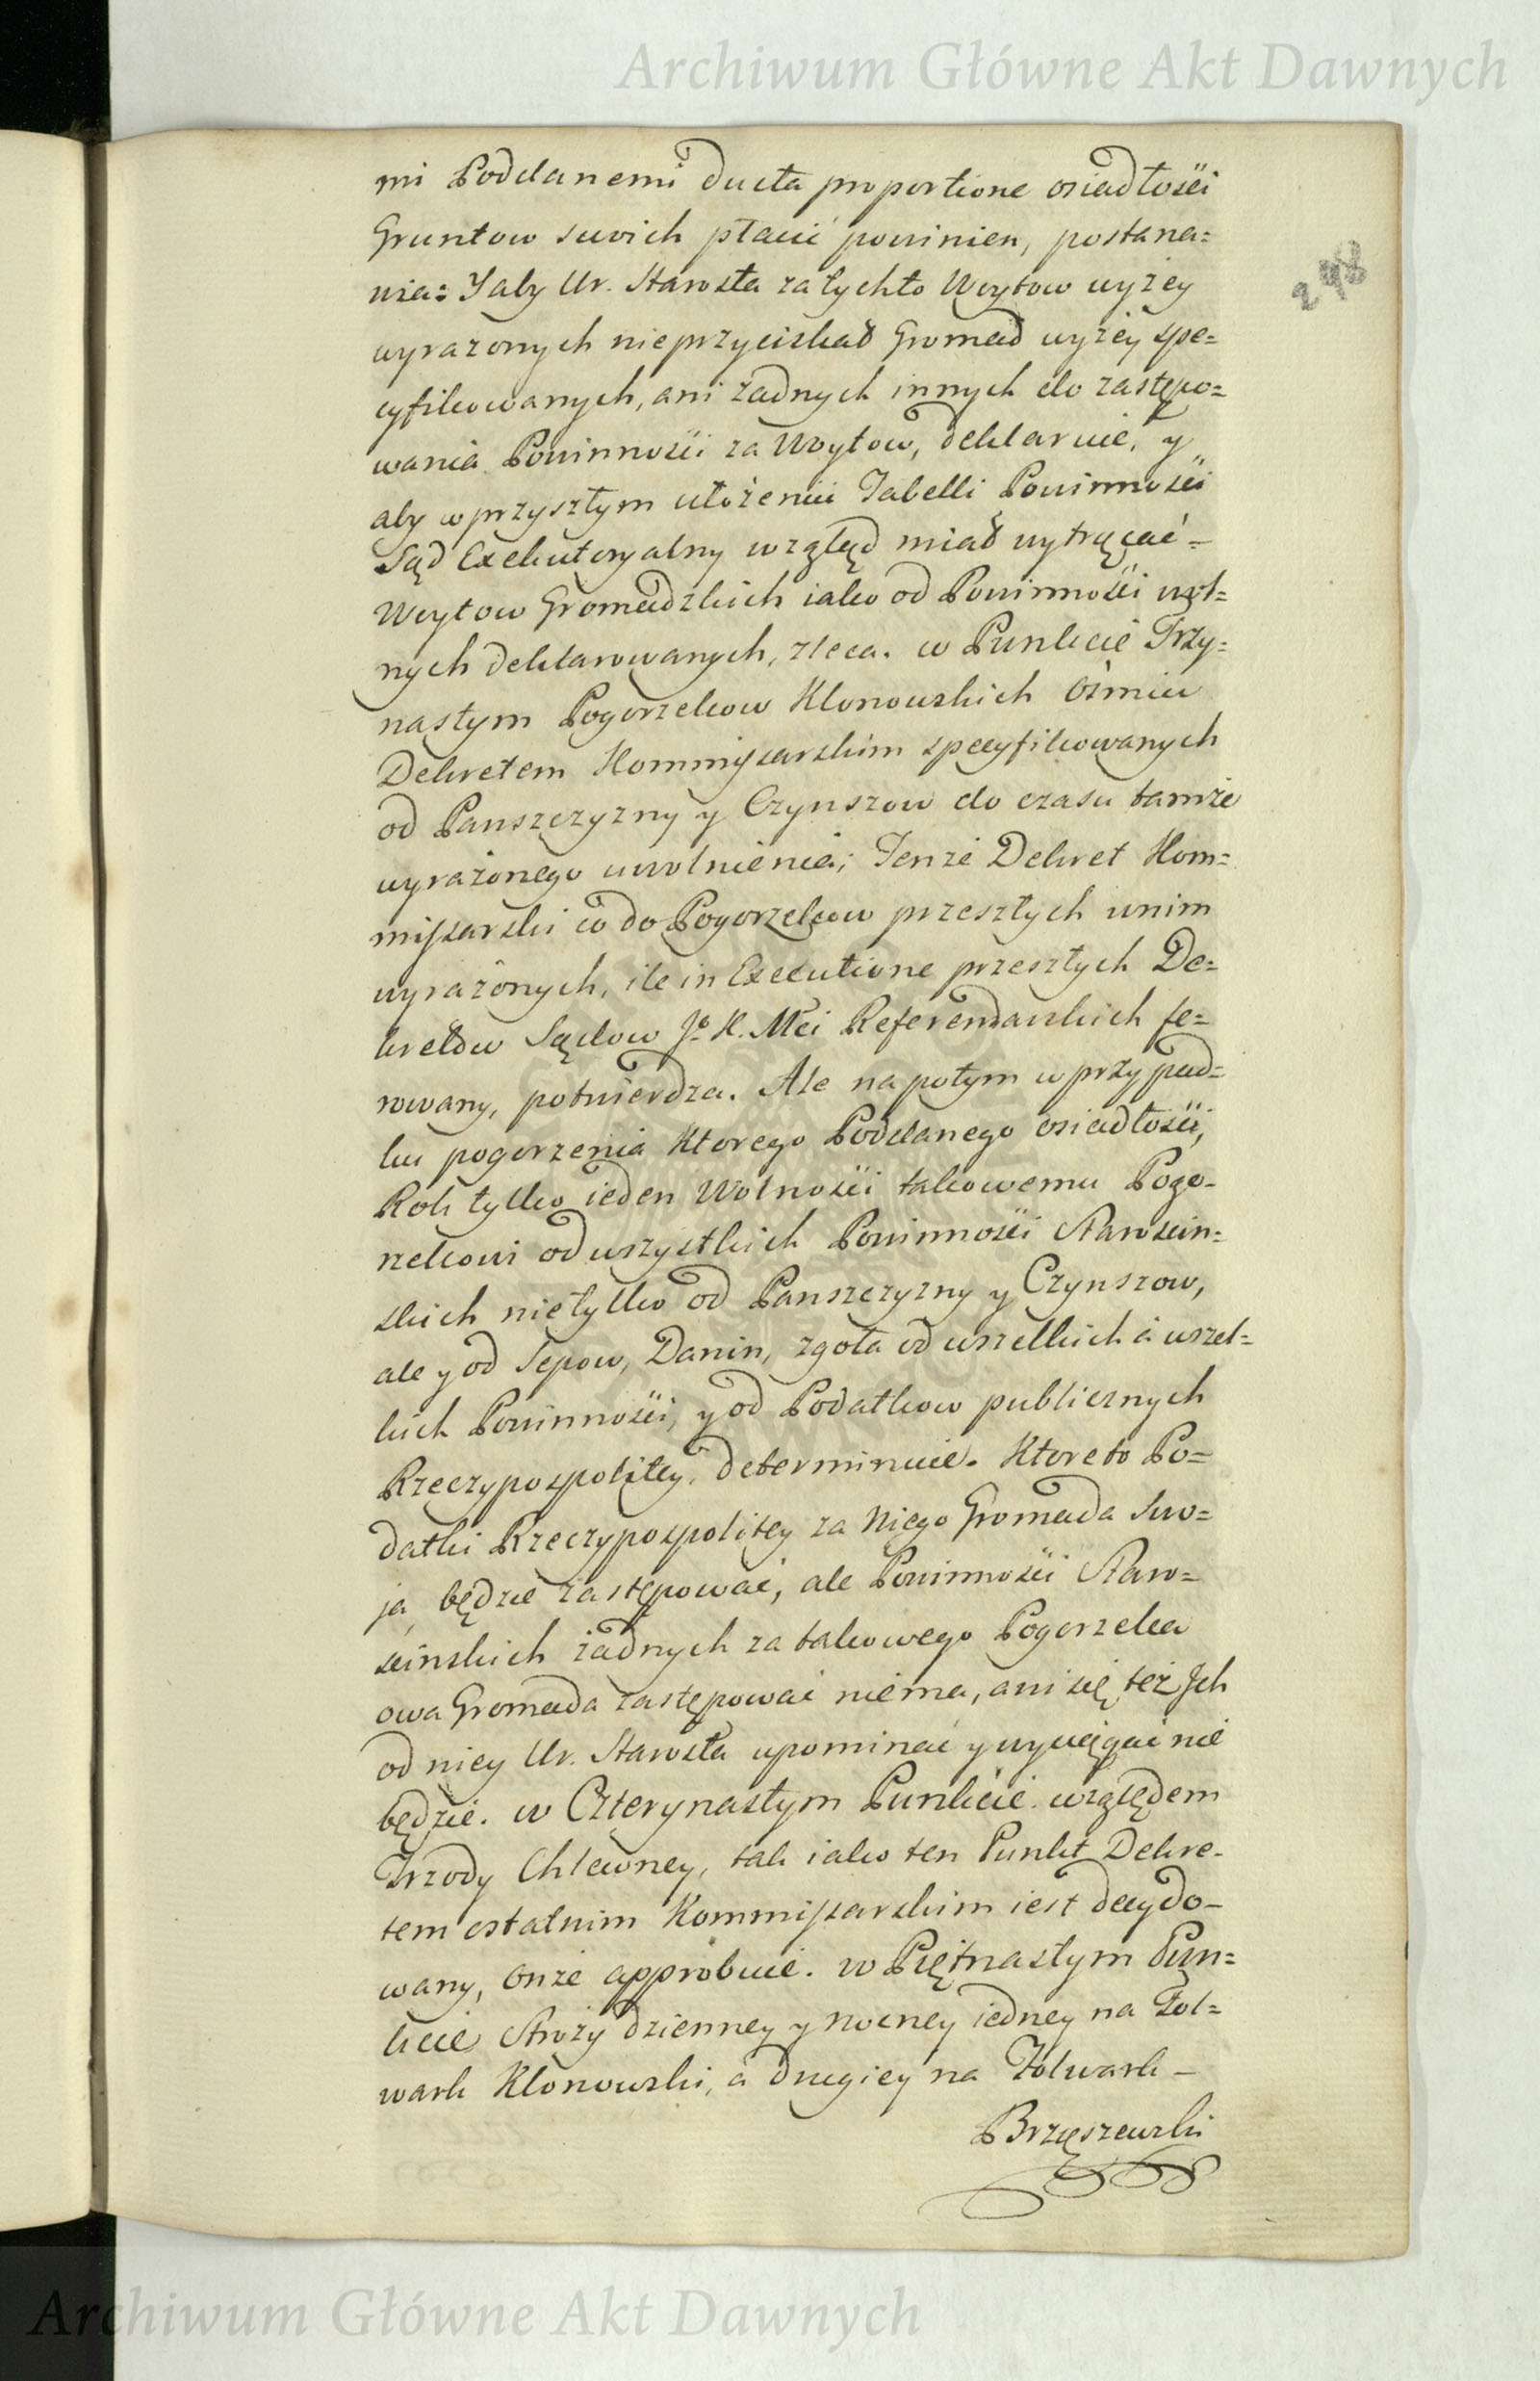 Archiwum Główne Akt Dawnych
248
mi Poddanemi ducta proportione osiadłości
Gruntow swoich płacić powinien, postana=
wia: Y aby Ur. Starosta za tychto Woytow wyżey
wyrazonych nieprzyciskał Gromad wyżey spe=
cyfikowanych, ani żadnych innych do zastępo=
wania Powinności za Woytow, deklaruie, y
aby w przyszłym ułożeniu Tabelli Powinności
Sąd Exekutoryalny wzgląd miał wytrącać=
Woytow Gromadzkich iako od Powinności wol=
nych deklarowanych, zleca. w Punkcie Trzy=
nastym Pogorzelcow Klonowskich Ośmiu
Dekretem Kommissarskim specyfikowanych
od Panszczyzny y Czynszow do czasu tamże
wyrażonego uwolnienia; Tenże Dekret Kom=
missarski co do Pogorzelcow przeszłych w nim
wyrażonych, ile in Executione przeszłych De=
kretow Sądow J. K. Mci Referendarskich fe=
rowany, potwierdza. Ale na potym w przypad=
ku pogorzenia Ktorego Poddanego osiadłości,
Rok tylko ieden Wolności takowemu Pogo-
rzelcowi od wszystkich Powinności Starościn=
skich nietylko od Panszczyzny y Czynszow,
ale y od Sepow, Danin, zgoła od wszelkich á wszel=
kich Powinności, y od Podatkow publicznych
Rzeczypospolitey, determinuie. Ktore to Po=
datki Rzeczypospolitey za Niego Gromada Swo=
ja będzie zastępować, ale Powinności Staro=
ścinskich żadnych za takowego Pogorzelca
owa Gromada zastępować niema, ani się też Jch
od niey Ur. Starosta upominać y wyciągać nie
będzie. w Czterynastym Punkcie względem
Trzody Chlewney, tak iako ten Punkt Dekre-
tem ostatnim Kommissarskim iest decydo-
wany, onże approbuie. w Piętnastym Pun=
kcie Stroży dzienney y nocney iedney na Fol=
wark Klonowski, á drugiey na Folwark -
Brzęszewski
Archiwum Główne Akt Dawnych